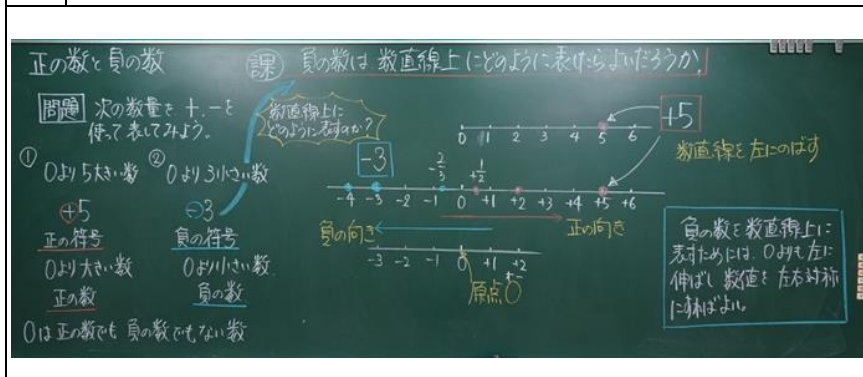 正の数と負の数
課 負の数は数直線上にどのように表けたらよいだろうか。
問題 次の数量を +, − を
使って表してみよう。
① 0より5大きい数
+5
正の符号
0より大きい数
正の数
② 0より3小さい数
−3
負の符号
0より小さい数
負の数
0は正の数でも負の数でもない数
数直線上に
どのように表すのか?
0 1 2 3 4 5 6
+5
数直線を左にのばす
−3
−2/3
+1/2
−4 −3 −2 −1 0 +1 +2 +3 +4 +5 +6
負の向き
正の向き
−3 −2 −1 0 +1 +2
+−
原点0
負の数を数直線上に
表すためには、0よりも左に
伸ばし 数値を左右対称
にすればよい。